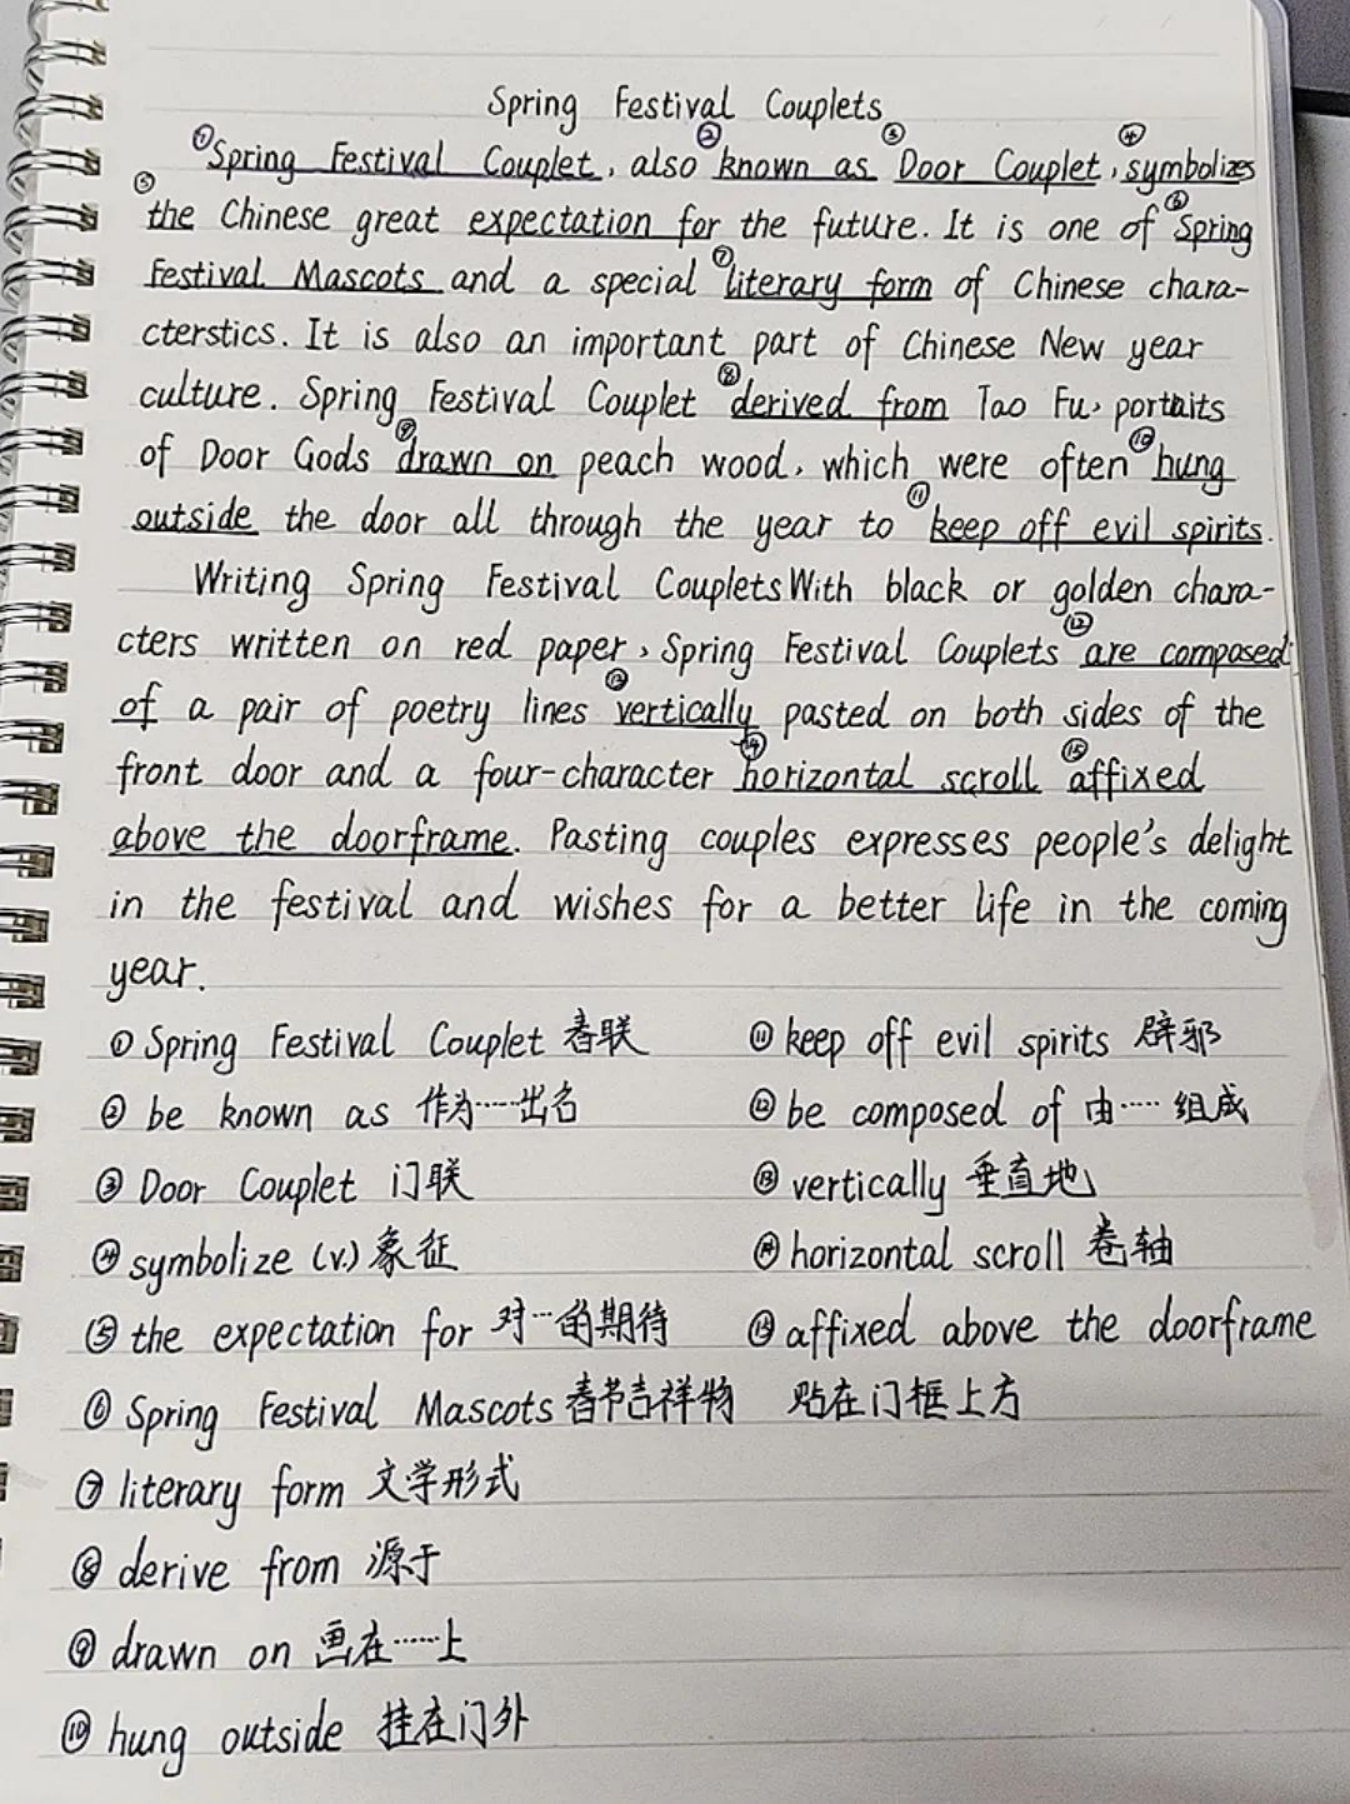 Spring Festival Couplets
①Spring Festival Couplet, also ②known as ③Door Couplet, ④symbolizes
⑤the Chinese great expectation for the future. It is one of ⑥Spring
Festival Mascots and a special ⑦literary form of Chinese chara-
cterstics. It is also an important part of Chinese New year
culture. Spring Festival Couplet ⑧derived from Tao Fu, portraits
of Door Gods ⑨drawn on peach wood, which were often ⑩hung
outside the door all through the year to ⑪keep off evil spirits.
Writing Spring Festival Couplets With black or golden chara-
cters written on red paper, Spring Festival Couplets ⑫are composed
of a pair of poetry lines ⑬vertically pasted on both sides of the
front door and a four-character ⑭horizontal scroll ⑮affixed
above the doorframe. Pasting couples expresses people's delight
in the festival and wishes for a better life in the coming
year.
①Spring Festival Couplet 春联
②be known as 作为……出名
③Door Couplet 门联
④symbolize (v.) 象征
⑤the expectation for 对…的期待
⑥Spring Festival Mascots 春节吉祥物
⑦literary form 文学形式
⑧derive from 源于
⑨drawn on 画在……上
⑩hung outside 挂在门外
⑪keep off evil spirits 辟邪
⑫be composed of 由……组成
⑬vertically 垂直地
⑭horizontal scroll 卷轴
⑮affixed above the doorframe
贴在门框上方